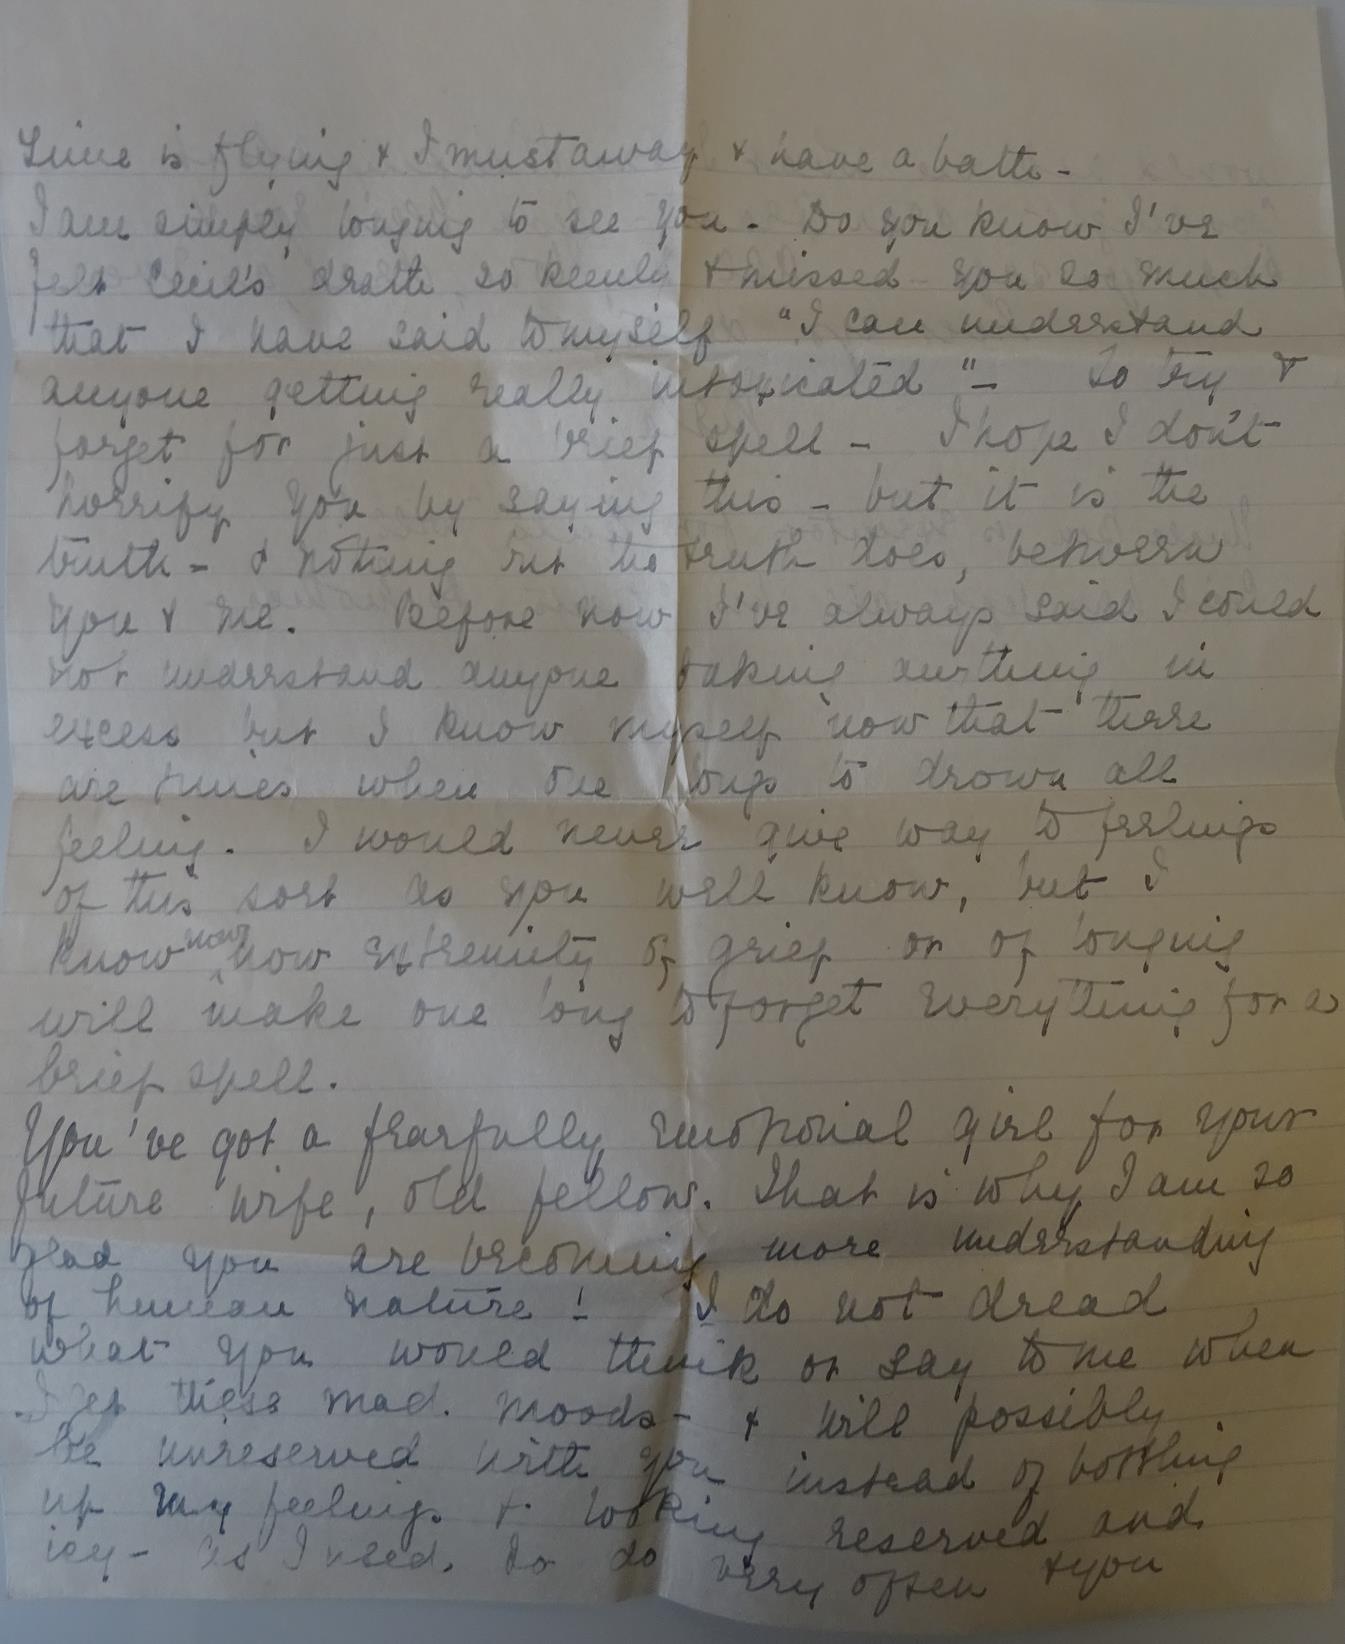 Time is flying & I must away & have a bath -
I am simply longing to see you. Do you know I've
felt Cecil's death so keenly & missed you so much
that I have said to myself "I can understand
anyone getting really intoxicated" - to try &
forget for just a brief spell - I hope I don't
horrify you by saying this - but it is the
truth - & nothing but the truth does, between
you & me. Before now I've always said I could
not understand anyone taking anything in
excess but I know myself now that there
are times when one longs to drown all
feeling. I would never give way to feelings
of this sort as you well know, but I
know now how extremity of grief or of longing
will make one long to forget everything for a
brief spell.
You've got a fearfully emotional girl for your
future wife, old fellow. That is why I am so
glad you are becoming more understanding
of human nature! I do not dread
what you would think or say to me when
I get these mad moods - & will possibly
be unreserved with you instead of bottling
up my feelings & looking reserved and
icy - as I used to do very often & you